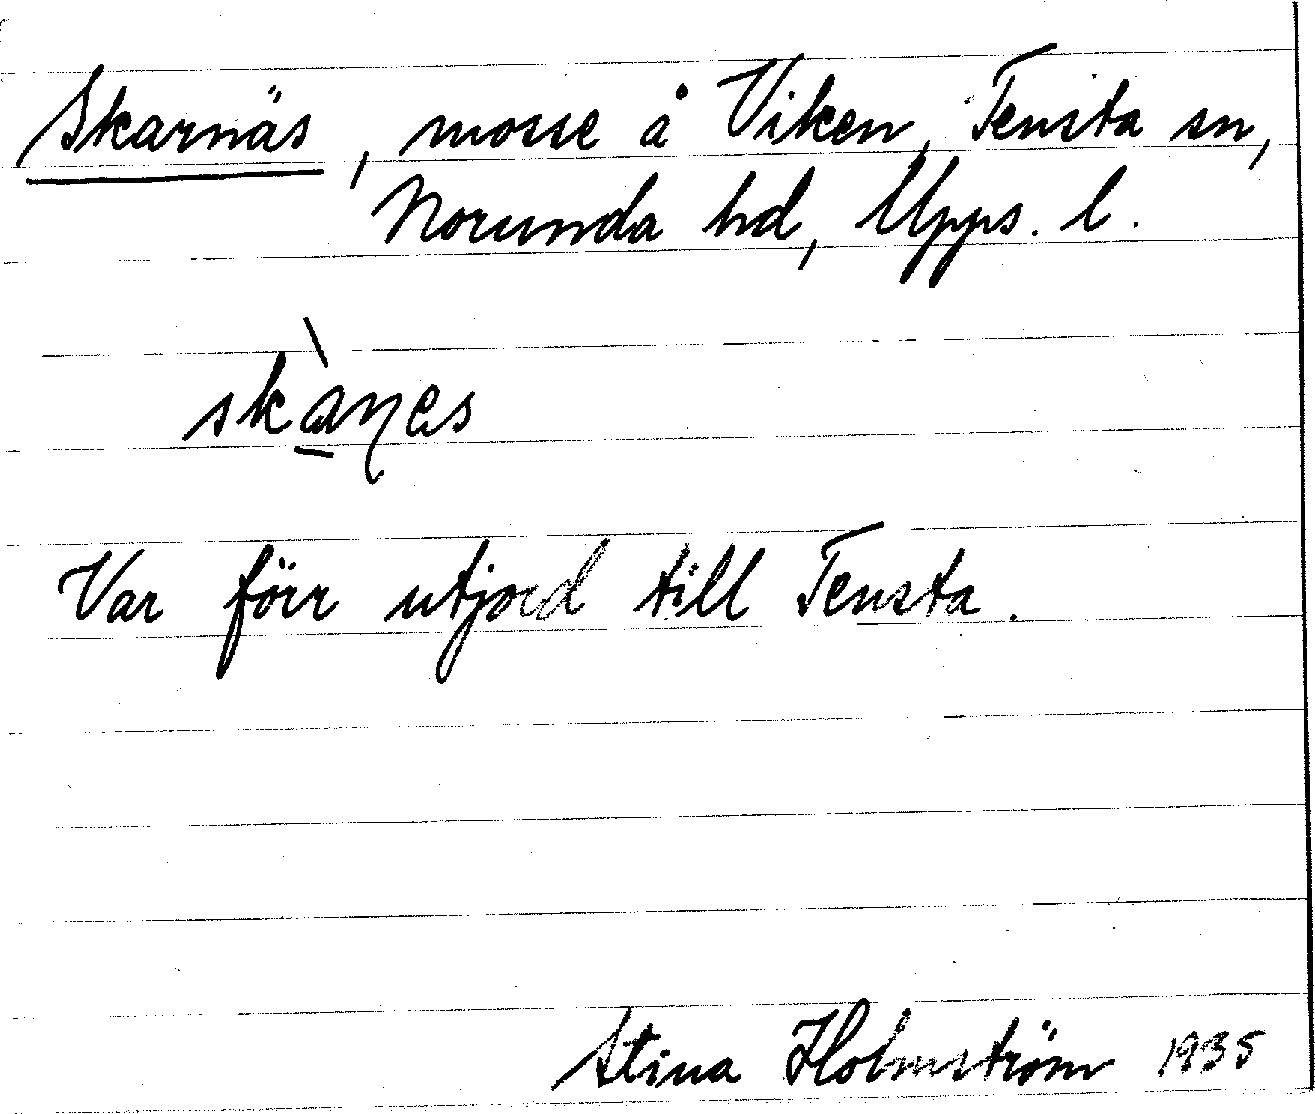 Skarnäs, mosse å Viken, Tensta sn,
Norunda hd, Upps. l.
skàṉes
Var förr utjord till Tensta.
Stina Holmström 1935